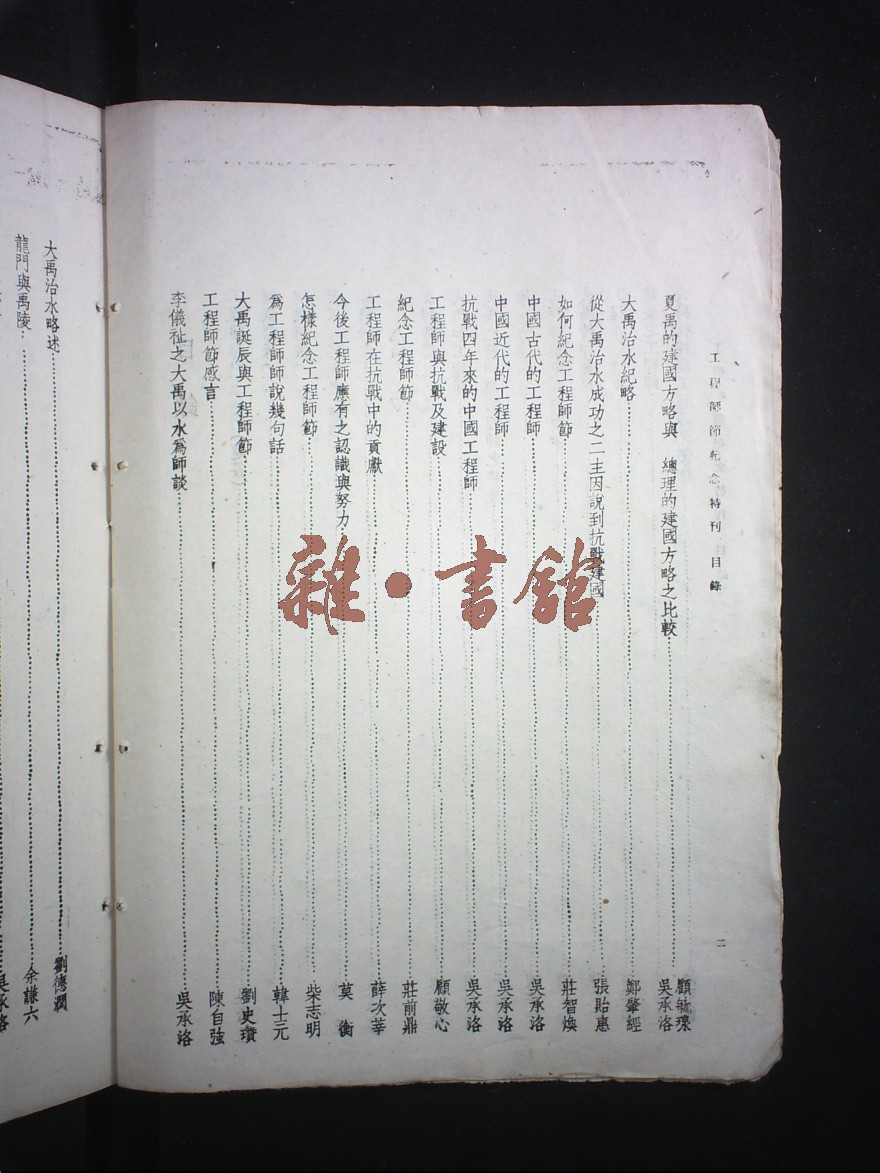 工程師節紀念特刊 目錄
二
夏禹的建國方略與 總理的建國方略之比較……顧毓瑔 吳承洛
大禹治水紀略……鄭肇經
從大禹治水成功之二主因說到抗戰建國……張貽惠
如何紀念工程師節……莊智煥
中國古代的工程師……吳承洛
中國近代的工程師……吳承洛
抗戰四年來的中國工程師……吳承洛
工程師與抗戰及建設……顧敬心
紀念工程師節……莊前鼎
工程師在抗戰中的貢獻……薛次莘
今後工程師應有之認識與努力……莫 衡
怎樣紀念工程師節……柴志明
為工程師師說幾句話……韓士元
大禹誕辰與工程師節……劉史瓚
工程師節感言……陳自強
李儀祉之大禹以水為師談……吳承洛
大禹治水略述……劉德潤
龍門與禹陵……余謙六
吳承洛
雜·書館